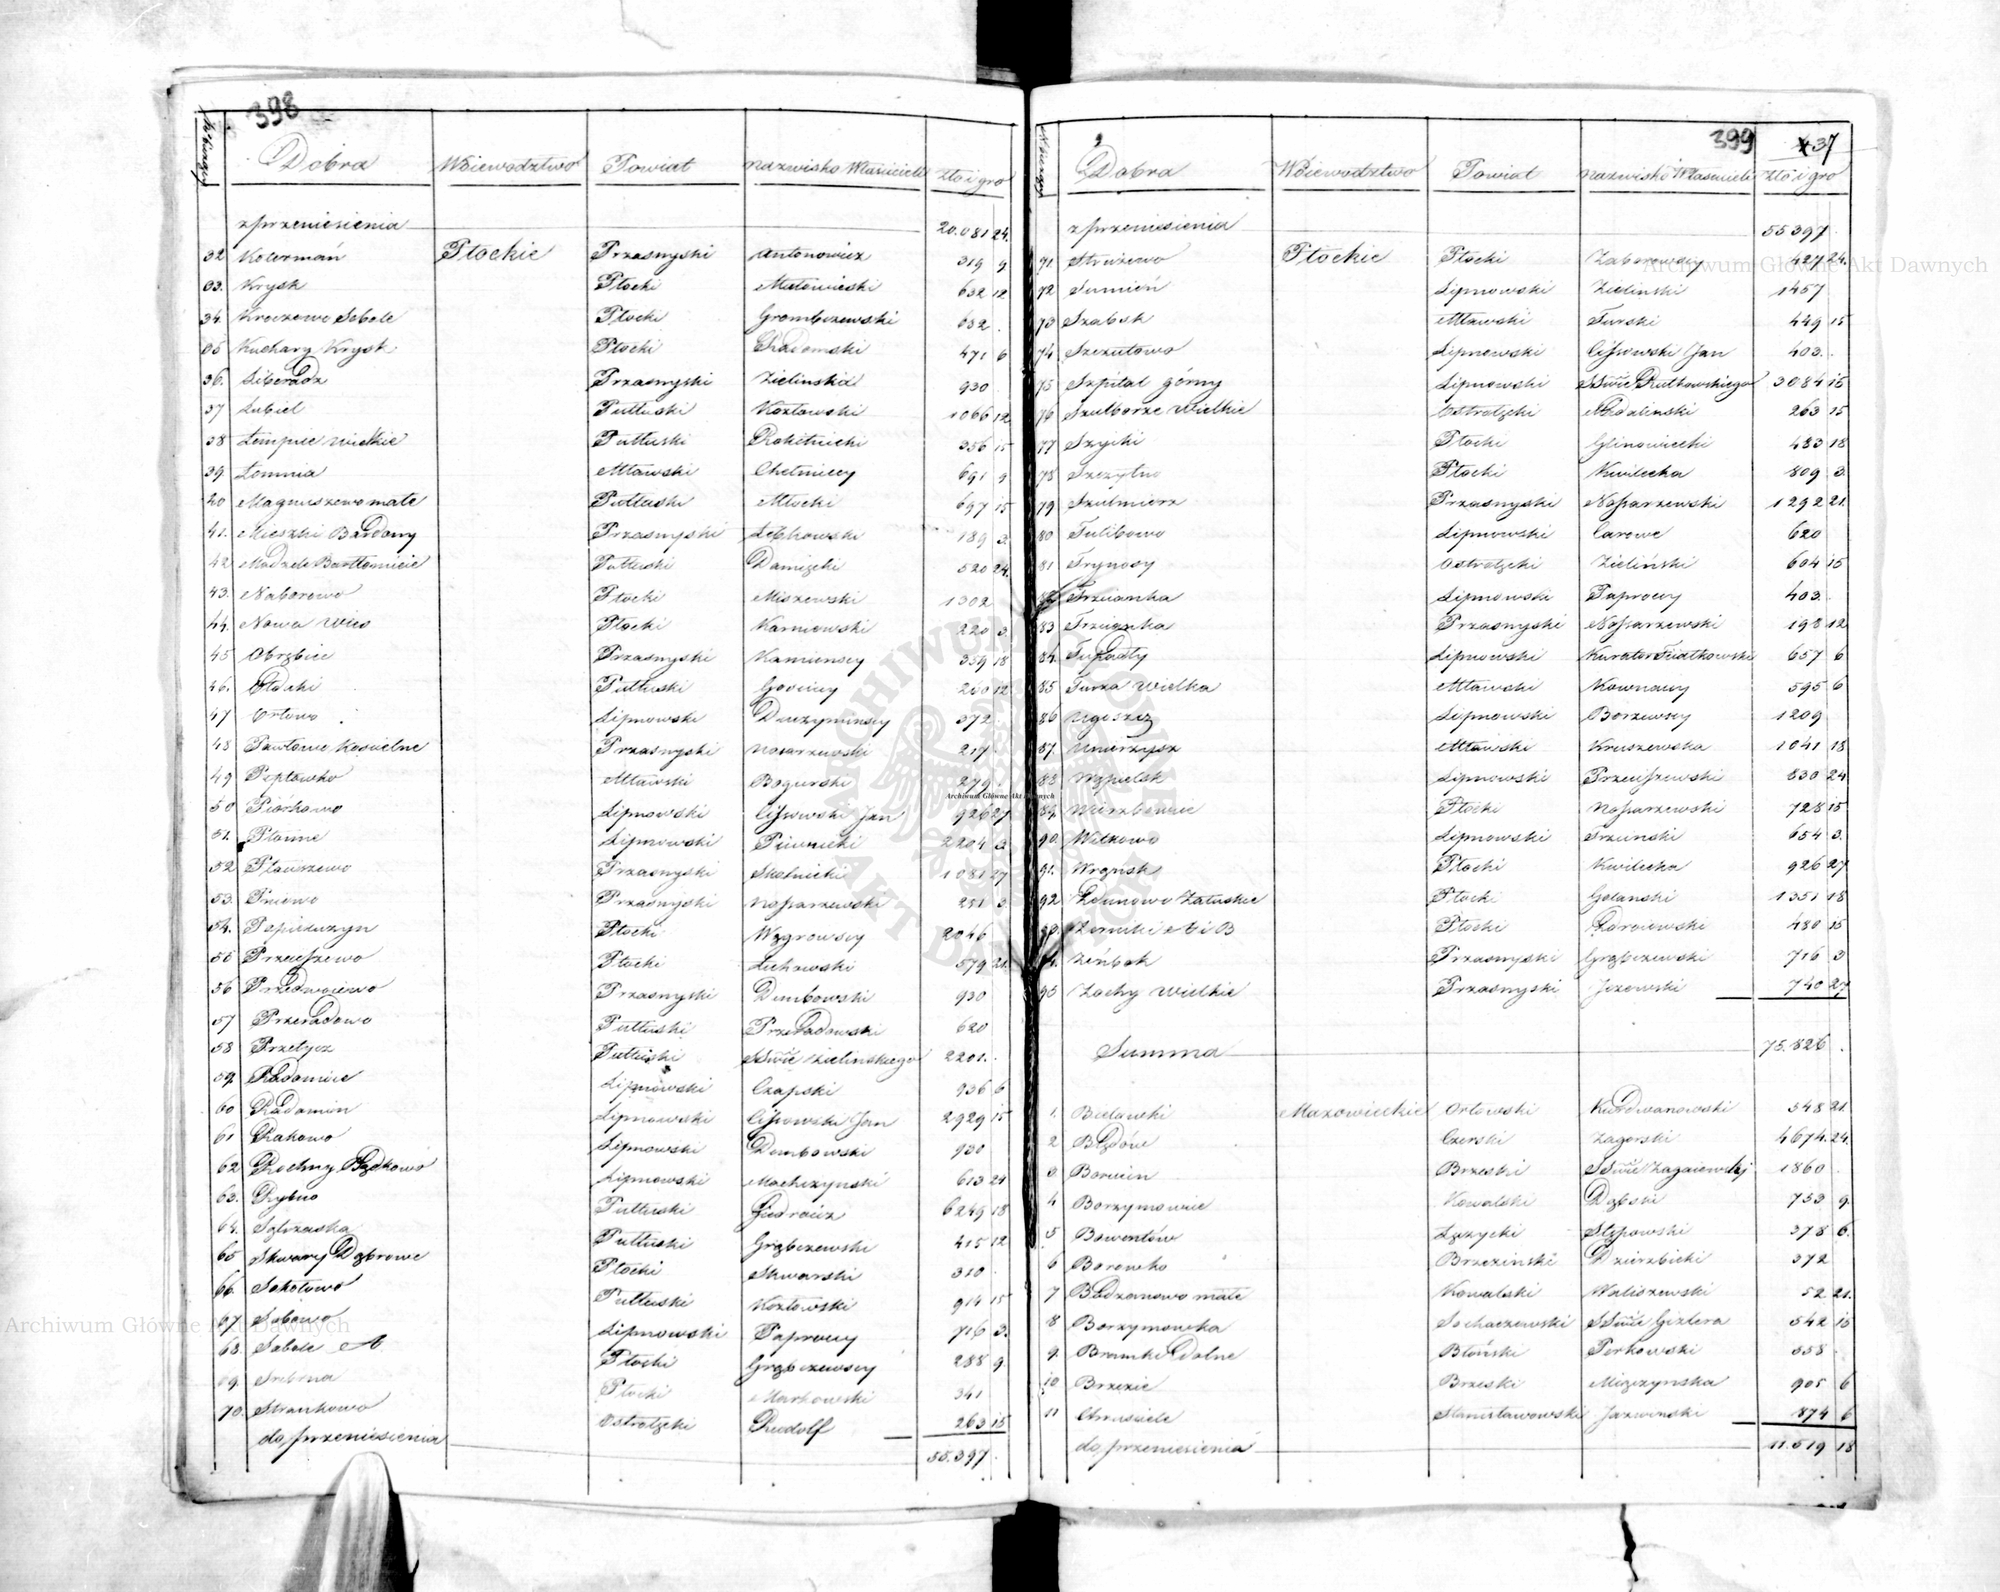 398
Dobra Woiewodztwo Powiat Nazwisko Właściciela Złot i gro
z przeniesienia 20.081 24.
32 Kolermán Płockie Przasnyski Antonowicz 319 9
33. Krysk Płocki Malowieski 632 12
34. Kroczewo Sobole Płocki Grombczewski 632 .
35 Kuchary Krysk Płocki Radomski 471 6
36. Liberadz Przasnyski Zielinska 930
37 Lubiel Pułtuski Kozłowski 1066 12
38 Łempice Wielkie Pułtuski Rokitnicki 356 15
39 Łomnia Mławski Chełmiccy 691 9
40 Magnuszewo małe Pułtuski Młocki 697 15
41. Mieszki Bardony Przasnyski Lelkowski 189 3
42 Modzele Bartłomieie Pułtuski Damięcki 520 24.
43. Naborowo Płocki Miszewski 1302
44. Nowa Wies Płocki Karniewski 220 3
45 Obrębiec Przasnyski Kamienscy 359 18
46. Pułtuski 260 12
47 Orłowo Lipnowski 372
48 Pawłowo Kościelne Przasnyski Nosarzewski 217
49 Pepłowko Mławski Bogurski 279
50 Piórkowo Lipnowski Ciſsowski Jan 926 27
51. Płonne Lipnowski Piwnicki 2204 3
52 Przasnyski Skolnicki 1081 27
53. Pniewo Przasnyski Noſsarzewski 251 3
54. Popielżyn Płocki Węgrowscy 2046
55 Przeciſzewo Płocki 579 21.
56 Przedwoiewo Przasnyski Dembowski 930
57 Przeradowo Pułtuski Przeradowski 620
58 Przetycz Pułtuski SSwie Zielinskiego 2201.
59. Radomice Lipnowski Czapski 936 6
60 Radomin Lipnowski Ciſsowski Jan 2929 15
61 Rakowo Lipnowski Dembowski 930
62 Rochny Lipnowski Machczynski 613 24
63. Rybno Pułtuski Giedroicz 6249 18
64. Pułtuski Grąbczewski 415 12
65 Skwary Dąbrowe Płocki Skwarski 310
66 Sokołowo Pułtuski Kozłowski 914 15
67 Sobowo Lipnowski Paprocey 716 3.
68. Sobole A Płocki Grąbczewscy 288 9.
69. Srebrna Płocki Markowski 341
70. Strachowo Ostrołęcki Rudolf 263 15
do przeniesienia 55.397
399 437
Dobra Woiewodztwo Powiat Nazwisko Właściciela Złot i gro
z przeniesienia 55397
71 Struzewo Płockie Płocki Zaborowscy 427 24.
72 Sumień Lipnowski Zielinski 1457
73 Szabsk Mławski Turski 449 15
74 Szczutowo Lipnowski Ciſsowski Jan 403.
75 Szpital górny Lipnowski SSwie Rutkowskiego 3084 15
76 Szulborze Wielkie Ostrołęcki 263 15
77 Szyiki Płocki Glinowiecki 483 18
78 Szczytno Płocki Kwilecka 809 3.
79 Szulmierz Przasnyski Noſsarzewski 1292 21.
80 Tulibowo Lipnowski Carowe 620
81 Trynosy Ostrołęcki Zieliński 604 15
Trzcianka Lipnowski Paprocey 403
83 Trzcianka Przasnyski Noſsarzewski 198 12
84. Tupadły Lipnowski Kurator Fiałkowski 657 6
85 Turza Wielka Mławski Kownaccy 595 6
86 Ugoszcz Lipnowski Borzewscy 1209
87. Unierzysz Mławski Kruszewska 1041 18
88 Wąpielsk Lipnowski Przeciſzewski 830 24
89. Wierzbowiec Płocki Noſsarzewski 728 15
90. Witkowo Lipnowski Trzcinski 654 3.
91. Wrońsk Płocki Kwilecka 926 27
92 Zdunowo Załuskie Płocki Golanski 1351 18
A i B Płocki 480 15
Żeńbok Przasnyski Grąbczewski 716 3
95 Żochy Wielkie Przasnyski Jezowski 740 27
Summa 75.826 .
1. Bielawki Mazowieckie Orłowski Kurdwanowski 548 21.
2 Błędów Czerski Zagorski 4674. 24.
3 Borucin Brzeski SSwie Zagaiewskiej 1860
4 Borzymowice Kowalski Dąbski 753 9.
5 Bowentów Łęczycki Stępowski 378 6.
6 Borowko Brzezinski Dzierzbicki 372
7 Bodzanowo małe Kowalski Waliszewski 52 21.
8 Borzymowka Sochaczewski SSwie Gizlera 542 15
9. Bramki Dolne Błoński Perkowski 558
10 Brzezie Brzeski Mięczynska 905 6
11 Chrusciele Stanisławowski Jaźwinski 874 6
do przeniesienia 11.519 18
Archiwum Główne Akt Dawnych
Archiwum Główne Akt Dawnych
Archiwum Główne Akt Dawnych